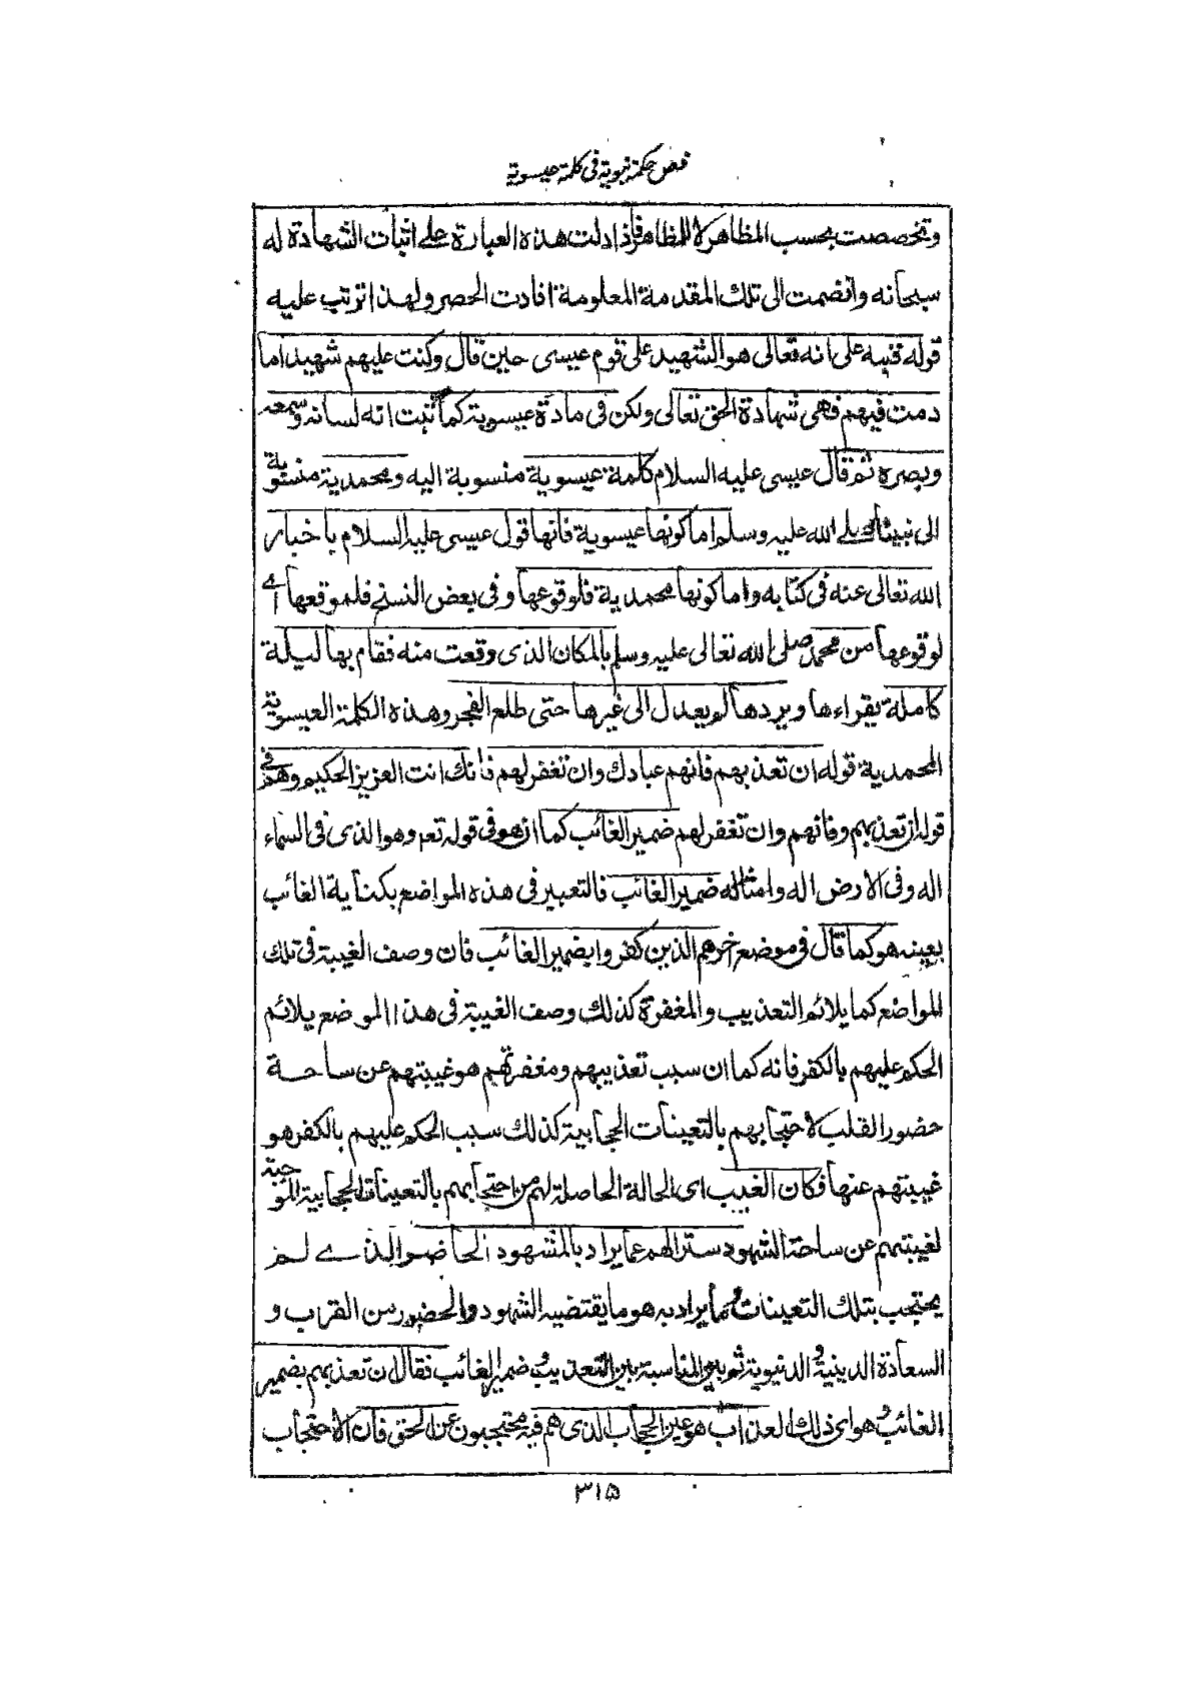 فص حكمة نبوية فى كلمة عيسوية
وتخصصت بحسب المظاهر لا للمظاهر فاذا دلت هذه العبارة على اثبات الشهادة له
سبحانه وانضمت الى تلك المقدمة المعلومة افادت الحصر ولهذا ترتب عليه
قوله فنبه على انه تعالى هو الشهيد على قوم عيسى حين قال وكنت عليهم شهيدا ما
دمت فيهم فهى شهادة الحق تعالى ولكن فى مادة عيسوية كما ثبت انه لسانه وسمعه
وبصره ثم قال عيسى عليه السلام كلمة عيسوية منسوبة اليه ومحمدية منسوبة
الى نبينا صلے الله عليه وسلم اما كونها عيسوية فانها قول عيسى عليه السلام باخبار
الله تعالى عنه فى كتابه واما كونها محمدية فلوقوعها وفى بعض النسخ فلموقعها اے
لوقوعها من محمد صلى الله تعالى عليه وسلم بالمكان الذى وقعت منه فقام بها ليلة
كاملة يقراءها ويردها لم يعدل الى غيرها حتى طلع الفجر وهذه الكلمة العيسوية
المحمدية قوله ان تعذبهم فانهم عبادك وان تغفر لهم فانك انت العزيز الحكيم وهم فى
قوله ان تعذبهم وفانهم وان تغفر لهم ضمير الغائب كما ان هو فى قوله تعم وهو الذى فى السماء
اله وفى الارض اله وامثاله ضمير الغائب فالتعبير فى هذه المواضع بكناية الغائب
بعينه هو كما قال فى موضع اخر هم الذين كفروا بضمير الغائب فان وصف الغيبة فى تلك
المواضع كما يلائم التعذيب والمغفرة كذلك وصف الغيبة فى هذا الموضع يلائم
الحكم عليهم بالكفر فانه كما ان سبب تعذيبهم ومغفرتهم هو غيبتهم عن ساحة
حضور القلب لاحتجابهم بالتعينات الحجابية كذلك سبب الحكم عليهم بالكفر هو
غيبتهم عنها فكان الغيب اى الحالة الحاصلة لهم من احتجابهم بالتعينات الحجابية الموجبة
لغيبتهم عن ساحة الشهود سترا لهم عما يراد بالمشهود الحاضر الذے لم
يحتجب بتلك التعينات وما يراد به هو ما يقتضيه الشهود والحضور من القراب و
السعادة الدينية والدنيوية ثم بين المناسبة بين التعذيب وضمير الغائب فقال ان تعذبهم بضمير
الغائب وهو اى ذلك العذاب هو عين الحجاب الذى هم فيه محتجبون عن الحق فان الاحتجاب
٣١٥